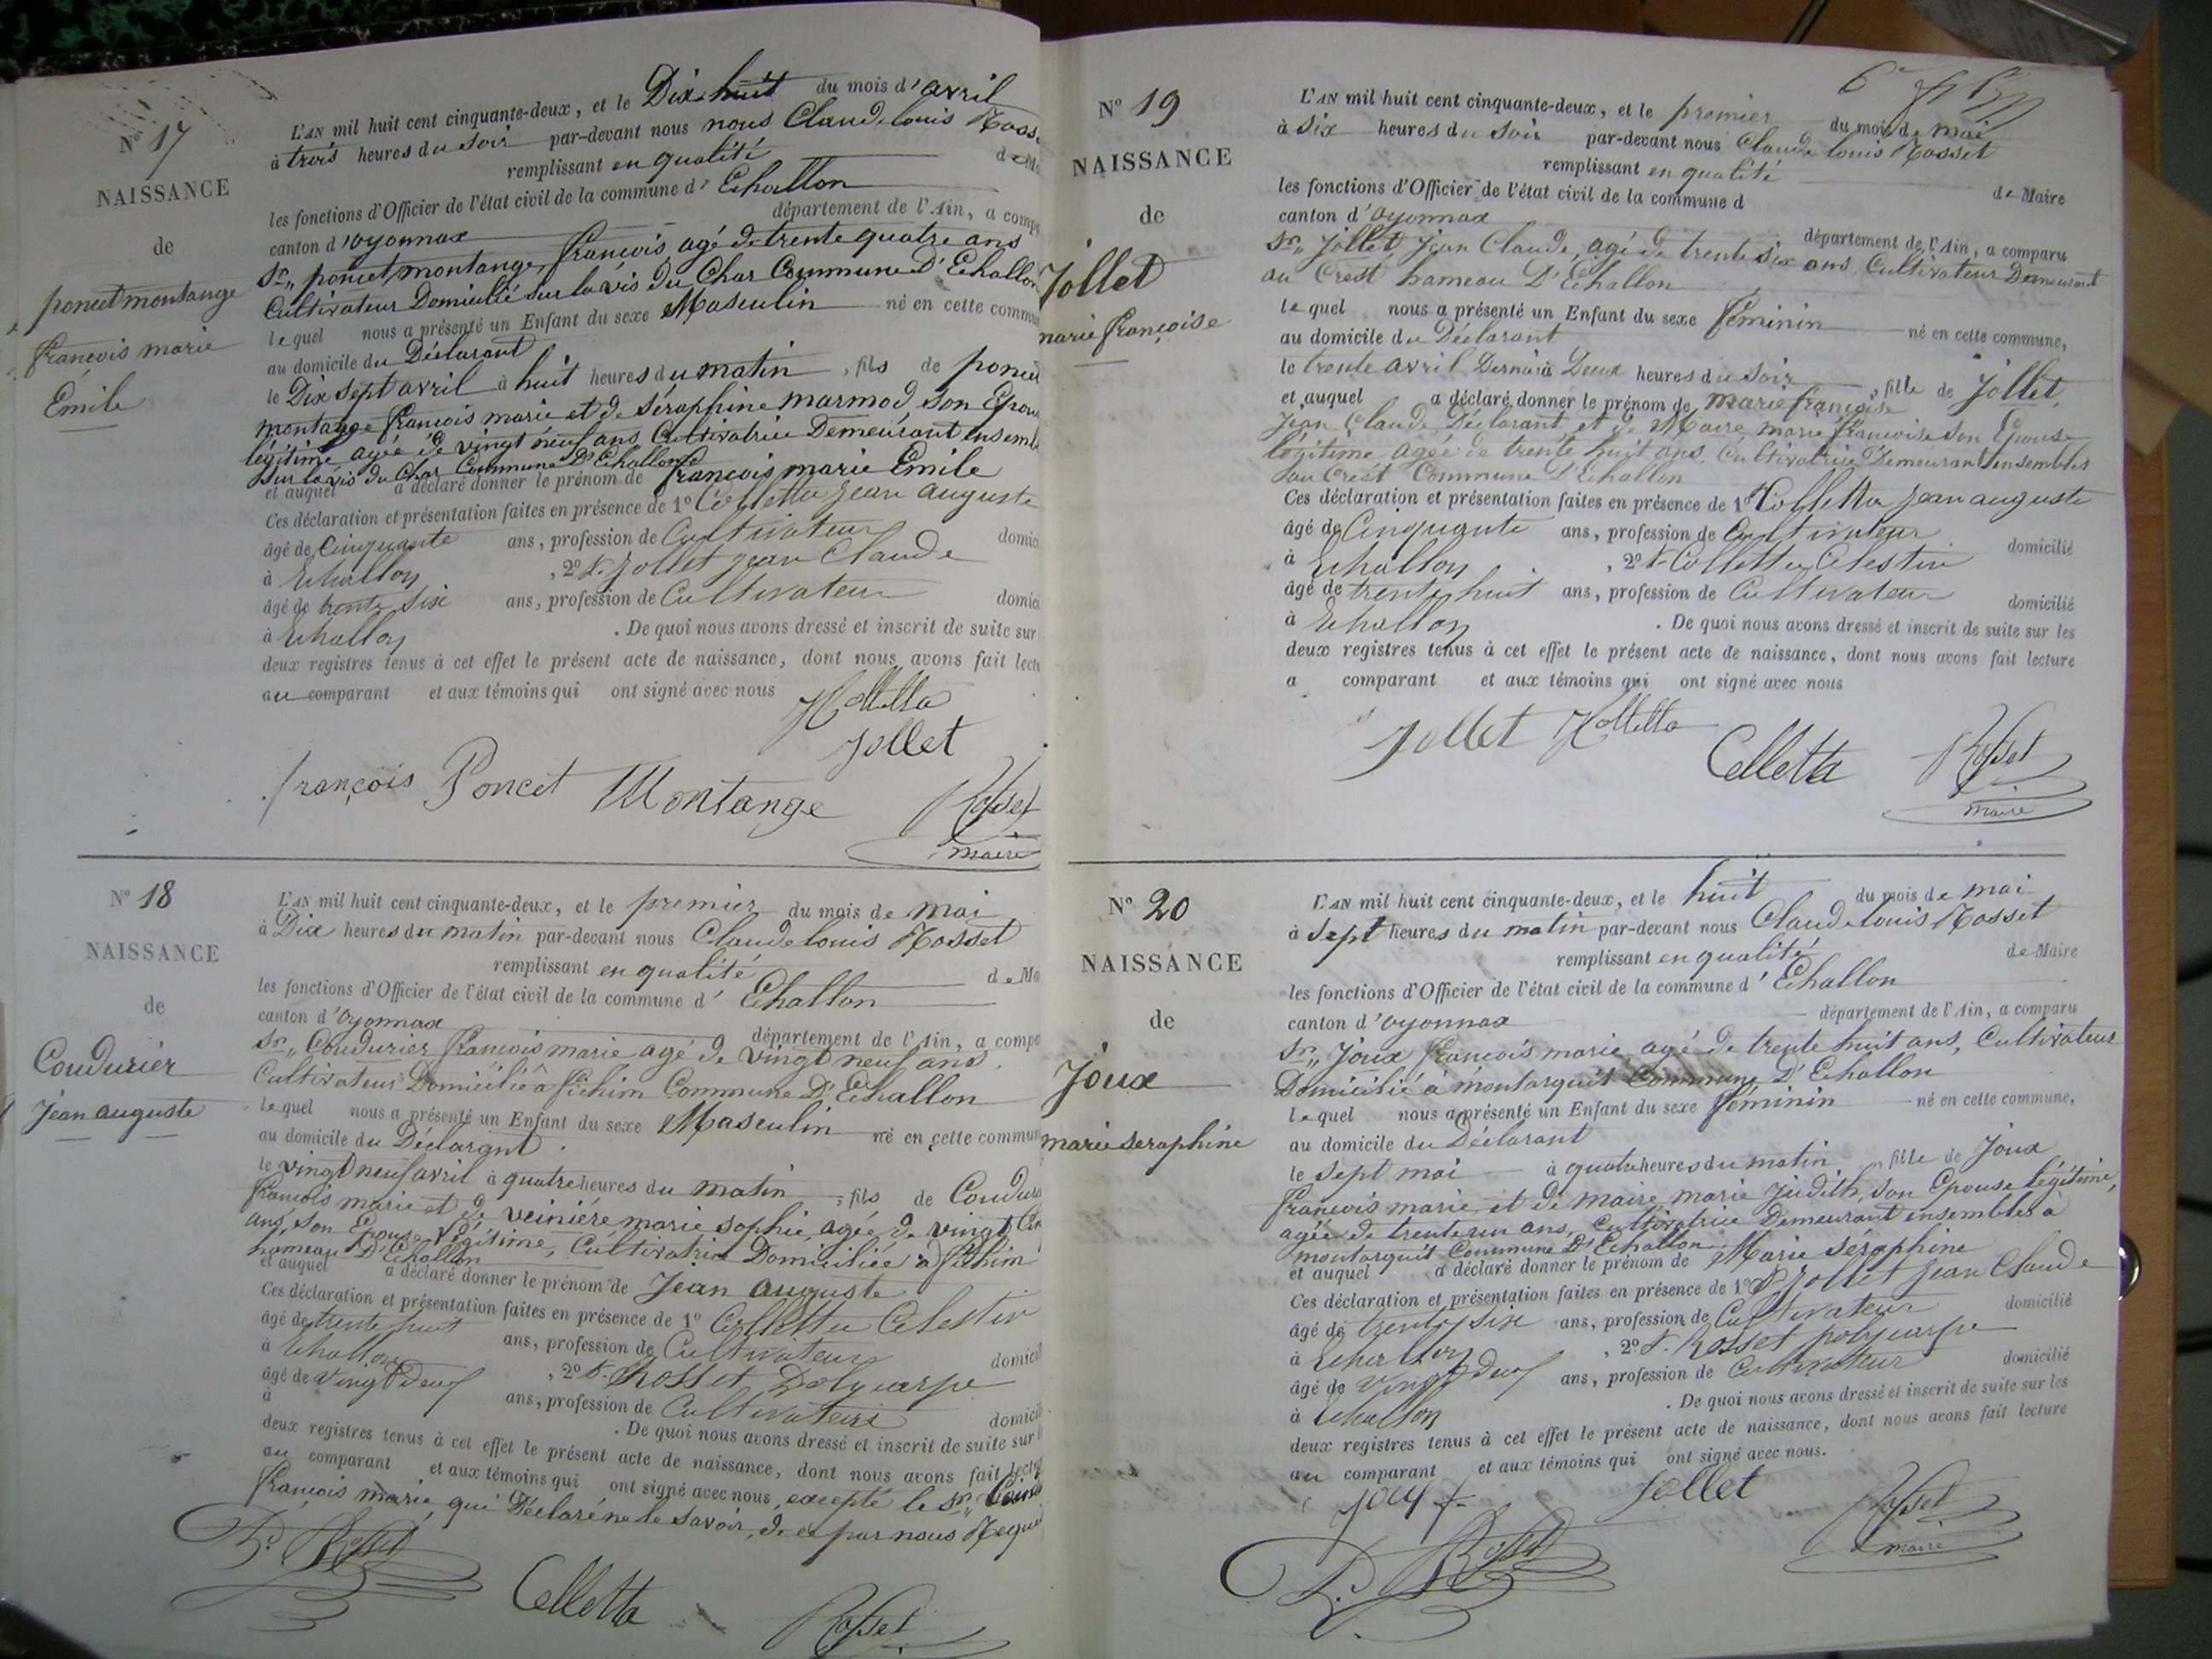 N° 17
NAISSANCE
de
poncet montange
françois marie
Émile
L'AN mil huit cent cinquante-deux, et le Dix huit du mois d'avril
à trois heures du soir par-devant nous nous Claude louis Rosse
remplissant en qualité de Ma
les fonctions d'Officier de l'état civil de la commune d' Echallon
canton d'oyonnax département de l'Ain, a compa
Sr,, poncet montange, françois, agé de trente quatre ans
Cultivateur Domicilié sur la vis du Char Commune D'Echallon
lequel nous a présenté un Enfant du sexe Masculin né en cette commu
au domicile du Déclarant
le Dix sept avril à huit heures du matin, fils de poncet
montange françois marie et de séraphine marmod, son Epou
légitime agée de vingt neuf ans Cultivatrice Demeurant ensemb
sur la vis du Char Commune D'Echallon
et auquel a déclaré donner le prénom de françois marie Emile
Ces déclaration et présentation faites en présence de 1° Colletta jean auguste
âgé de Cinquante ans, profession de Cultivateur domic
à Echallon, 2° S. Jollet jean Claude
âgé de trente six ans, profession de Cultivateur domici
à Echallon. De quoi nous avons dressé et inscrit de suite sur
deux registres tenus à cet effet le présent acte de naissance, dont nous avons fait lectu
au comparant et aux témoins qui ont signé avec nous
Colletta
Jollet
françois Poncet Montange
Rosset
maire
N° 18
NAISSANCE
de
Coudurier
Jean auguste
L'AN mil huit cent cinquante-deux, et le premier du mois de mai
à Dix heures du matin par-devant nous Claude louis Rosset
remplissant en qualité de Ma
les fonctions d'Officier de l'état civil de la commune d' Echallon
canton d'oyonnax département de l'Ain, a compa
Sr,, Coudurier françois marie agé de vingt neuf ans
Cultivateur Domicilié à fichim Commune D'Echallon
lequel nous a présenté un Enfant du sexe Masculin né en cette commun
au domicile du Déclarant
le vingt neuf avril à quatre heures du matin, fils de Coudur
françois marie et de veinière marie sophie, agée de vingt Cin
ans, son Epouse légitime, Cultivatrice Domiciliée à fichim
hameau D'Echallon
et auquel a déclaré donner le prénom de Jean auguste
Ces déclaration et présentation faites en présence de 1° Colletta Celestin
âgé de trente huit ans, profession de Cultivateur domicil
à Echallon, 2° S. Rosset Polycarpe
âgé de vingt deux ans, profession de Cultivateur domicil
à . De quoi nous avons dressé et inscrit de suite sur
deux registres tenus à cet effet le présent acte de naissance, dont nous avons fait lectu
au comparant et aux témoins qui ont signé avec nous, excepté le Sr,, Coud
françois marie, qui a Déclaré ne le savoir, de ce par nous Requi
P. Rosset
Colletta
Rosset
N° 19
NAISSANCE
de
Jollet
marie françoise
L'AN mil huit cent cinquante-deux, et le premier du mois de mai
à six heures du soir par-devant nous Claude louis Rosset
remplissant en qualité de Maire
les fonctions d'Officier de l'état civil de la commune d
canton d'oyonnax département de l'Ain, a comparu
Sr,, Jollet, jean Claude, agé de trente six ans, Cultivateur Demeurant
au Crest hameau D'Echallon
lequel nous a présenté un Enfant du sexe féminin né en cette commune,
au domicile du Déclarant
le trente avril Dernier à Deux heures du soir, fille de Jollet,
et auquel a déclaré donner le prénom de marie françoise
Jean Claude Déclarant, et de Maire marie françoise son Epouse
légitime agée de trente huit ans, Cultivatrice Demeurant ensembles
au Crest Commune D'Echallon
Ces déclaration et présentation faites en présence de 1° Colletta jean auguste
âgé de Cinquante ans, profession de Cultivateur domicilié
à Echallon, 2° S. Colletta Celestin
âgé de trente huit ans, profession de Cultivateur domicilié
à Echallon. De quoi nous avons dressé et inscrit de suite sur les
deux registres tenus à cet effet le présent acte de naissance, dont nous avons fait lecture
a comparant et aux témoins qui ont signé avec nous
Jollet Colletta
Colletta Rosset
maire
N° 20
NAISSANCE
de
Joux
marie seraphine
L'AN mil huit cent cinquante-deux, et le huit du mois de mai
à sept heures du matin par-devant nous Claude louis Rosset
remplissant en qualité de Maire
les fonctions d'Officier de l'état civil de la commune d' Echallon
canton d'oyonnax département de l'Ain, a comparu
Sr,, Joux françois marie agé de trente huit ans, Cultivateur
Domicilié à montarquit Commune D'Echallon
lequel nous a présenté un Enfant du sexe féminin né en cette commune,
au domicile du Déclarant
le sept mai à quatre heures du matin, fille de Joux
françois marie, et de maire marie judith, son Epouse légitime,
agée de trente un ans, Cultivatrice Demeurant ensembles à
montarquit Commune D'Echallon
et auquel a déclaré donner le prénom de Marie séraphine
Ces déclaration et présentation faites en présence de 1° S. Jollet jean Claude
âgé de trente six ans, profession de Cultivateur domicilié
à Echallon, 2° S. Rosset polycarpe
âgé de vingt deux ans, profession de Cultivateur domicilié
à Echallon. De quoi nous avons dressé et inscrit de suite sur les
deux registres tenus à cet effet le présent acte de naissance, dont nous avons fait lecture
au comparant et aux témoins qui ont signé avec nous.
Joux f. Jollet Rosset
P. Rosset maire